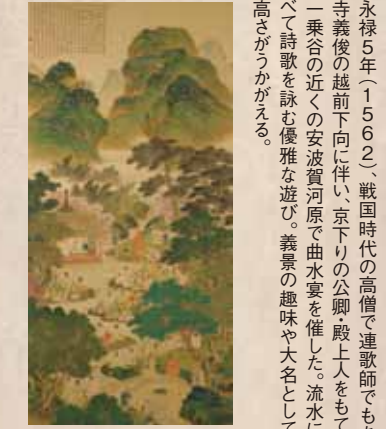 永禄5年(1562)、戦国時代の高僧で連歌師でもあ
寺義俊の越前下向に伴い、京下りの公卿・殿上人をもて
一乗谷の近くの安波賀河原で曲水宴を催した。流水に
べて詩歌を詠む優雅な遊び。義景の趣味や大名として
高さがうかがえる。